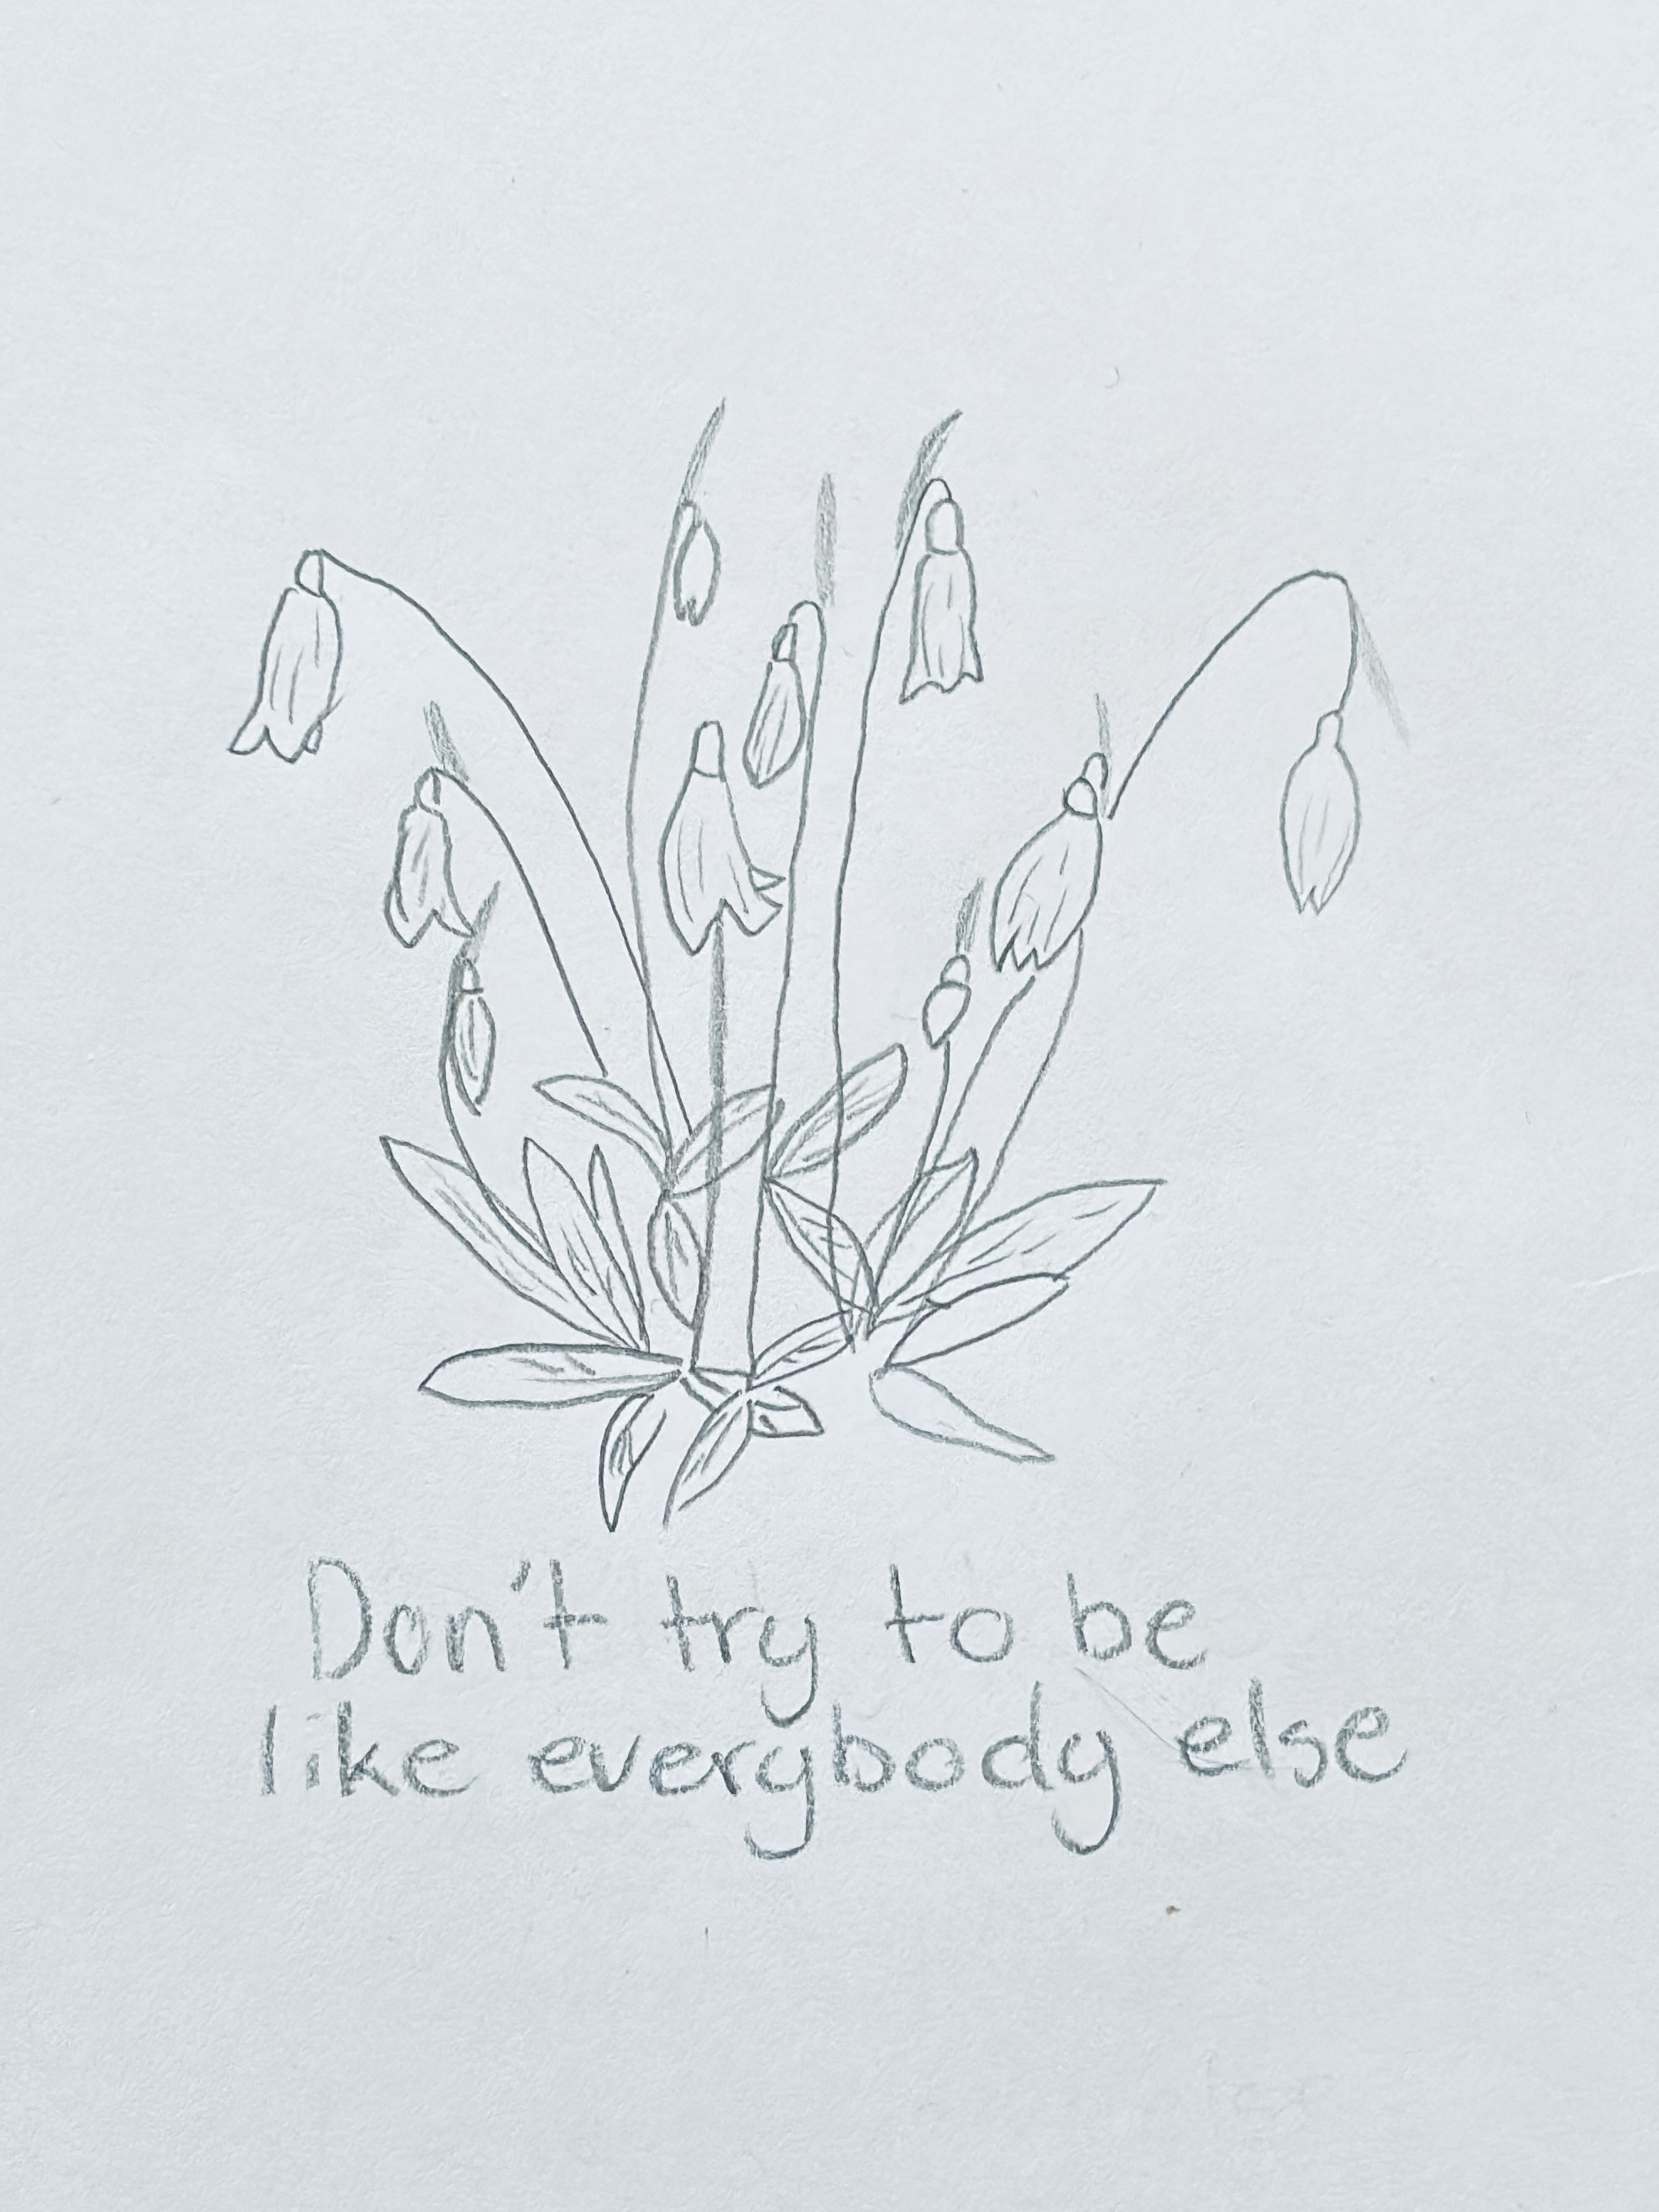 Don't try to be
like everybody else